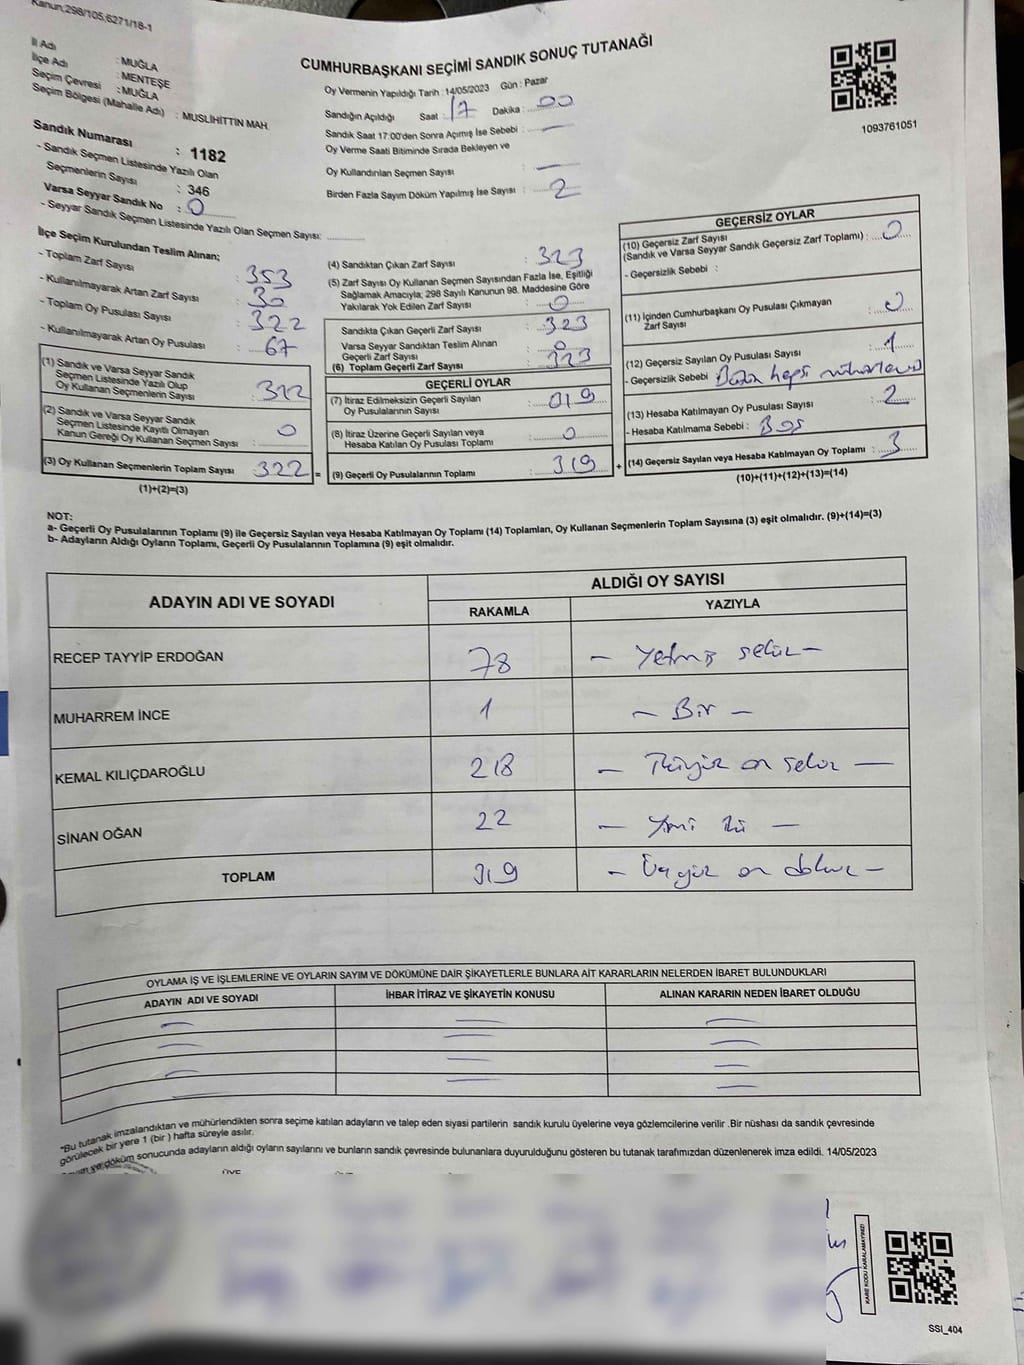 Kanun;298/105,6271/18-1
İl Adı : MUĞLA
İlçe Adı : MENTEŞE
Seçim Çevresi : MUĞLA
Seçim Bölgesi (Mahalle Adı) : MUSLİHİTTİN MAH.
CUMHURBAŞKANI SEÇİMİ SANDIK SONUÇ TUTANAĞI
Oy Vermenin Yapıldığı Tarih : 14/05/2023 Gün : Pazar
Sandığın Açıldığı Saat : 17 Dakika : 00
Sandık Saat 17:00'den Sonra Açımış İse Sebebi : —
Oy Verme Saati Bitiminde Sırada Bekleyen ve
Oy Kullandırılan Seçmen Sayısı : —
Birden Fazla Sayım Döküm Yapılmış İse Sayısı : 2
1093761051
Sandık Numarası : 1182
- Sandık Seçmen Listesinde Yazılı Olan
Seçmenlerin Sayısı : 346
Varsa Seyyar Sandık No : 0
- Seyyar Sandık Seçmen Listesinde Yazılı Olan Seçmen Sayısı:
İlçe Seçim Kurulundan Teslim Alınan;
- Toplam Zarf Sayısı : 353
- Kullanılmayarak Artan Zarf Sayısı : 30
- Toplam Oy Pusulası Sayısı : 322
- Kullanılmayarak Artan Oy Pusulası : 67
(1) Sandık ve Varsa Seyyar Sandık
Seçmen Listesinde Yazılı Olup
Oy Kullanan Seçmenlerin Sayısı : 322
(2) Sandık ve Varsa Seyyar Sandık
Seçmen Listesinde Kayıtlı Olmayan
Kanun Gereği Oy Kullanan Seçmen Sayısı : 0
(3) Oy Kullanan Seçmenlerin Toplam Sayısı : 322 =
(1)+(2)=(3)
(4) Sandıktan Çıkan Zarf Sayısı : 323
(5) Zarf Sayısı Oy Kullanan Seçmen Sayısından Fazla İse, Eşitliği
Sağlamak Amacıyla; 298 Sayılı Kanunun 98. Maddesine Göre
Yakılarak Yok Edilen Zarf Sayısı : 0
Sandıkta Çıkan Geçerli Zarf Sayısı : 323
Varsa Seyyar Sandıktan Teslim Alınan
Geçerli Zarf Sayısı : 0
(6) Toplam Geçerli Zarf Sayısı : 323
GEÇERLİ OYLAR
(7) İtiraz Edilmeksizin Geçerli Sayılan
Oy Pusulalarının Sayısı : 319
(8) İtiraz Üzerine Geçerli Sayılan veya
Hesaba Katılan Oy Pusulası Toplamı : 0
(9) Geçerli Oy Pusulalarının Toplamı : 319 +
GEÇERSİZ OYLAR
(10) Geçersiz Zarf Sayısı
(Sandık ve Varsa Seyyar Sandık Geçersiz Zarf Toplamı) : 0
- Geçersizlik Sebebi :
(11) İçinden Cumhurbaşkanı Oy Pusulası Çıkmayan
Zarf Sayısı : 0
(12) Geçersiz Sayılan Oy Pusulası Sayısı : 1
- Geçersizlik Sebebi : hepsi
(13) Hesaba Katılmayan Oy Pusulası Sayısı : 2
- Hesaba Katılmama Sebebi : Boş
(14) Geçersiz Sayılan veya Hesaba Katılmayan Oy Toplamı : 3
(10)+(11)+(12)+(13)=(14)
NOT:
a- Geçerli Oy Pusulalarının Toplamı (9) ile Geçersiz Sayılan veya Hesaba Katılmayan Oy Toplamı (14) Toplamları, Oy Kullanan Seçmenlerin Toplam Sayısına (3) eşit olmalıdır. (9)+(14)=(3)
b- Adayların Aldığı Oyların Toplamı, Geçerli Oy Pusulalarının Toplamına (9) eşit olmalıdır.
ADAYIN ADI VE SOYADI
ALDIĞI OY SAYISI
RAKAMLA YAZIYLA
RECEP TAYYİP ERDOĞAN 78 – Yetmiş sekiz –
MUHARREM İNCE 1 – Bir –
KEMAL KILIÇDAROĞLU 218 – İkiyüz on sekiz –
SİNAN OĞAN 22 – Yirmi iki –
TOPLAM 319 – Üçyüz on dokuz –
OYLAMA İŞ VE İŞLEMLERİNE VE OYLARIN SAYIM VE DÖKÜMÜNE DAİR ŞİKAYETLERLE BUNLARA AİT KARARLARIN NELERDEN İBARET BULUNDUKLARI
ADAYIN ADI VE SOYADI İHBAR İTİRAZ VE ŞİKAYETİN KONUSU ALINAN KARARIN NEDEN İBARET OLDUĞU
"Bu tutanak imzalandıktan ve mühürlendikten sonra seçime katılan adayların ve talep eden siyasi partilerin sandık kurulu üyelerine veya gözlemcilerine verilir .Bir nüshası da sandık çevresinde
görülecek bir yere 1 (bir ) hafta süreyle asılır.
ve döküm sonucunda adayların aldığı oyların sayılarını ve bunların sandık çevresinde bulunanlara duyurulduğunu gösteren bu tutanak tarafımızdan düzenlenerek imza edildi. 14/05/2023
ÜYE
KARE KODU KARALAMAYINIZ!
SSI_404